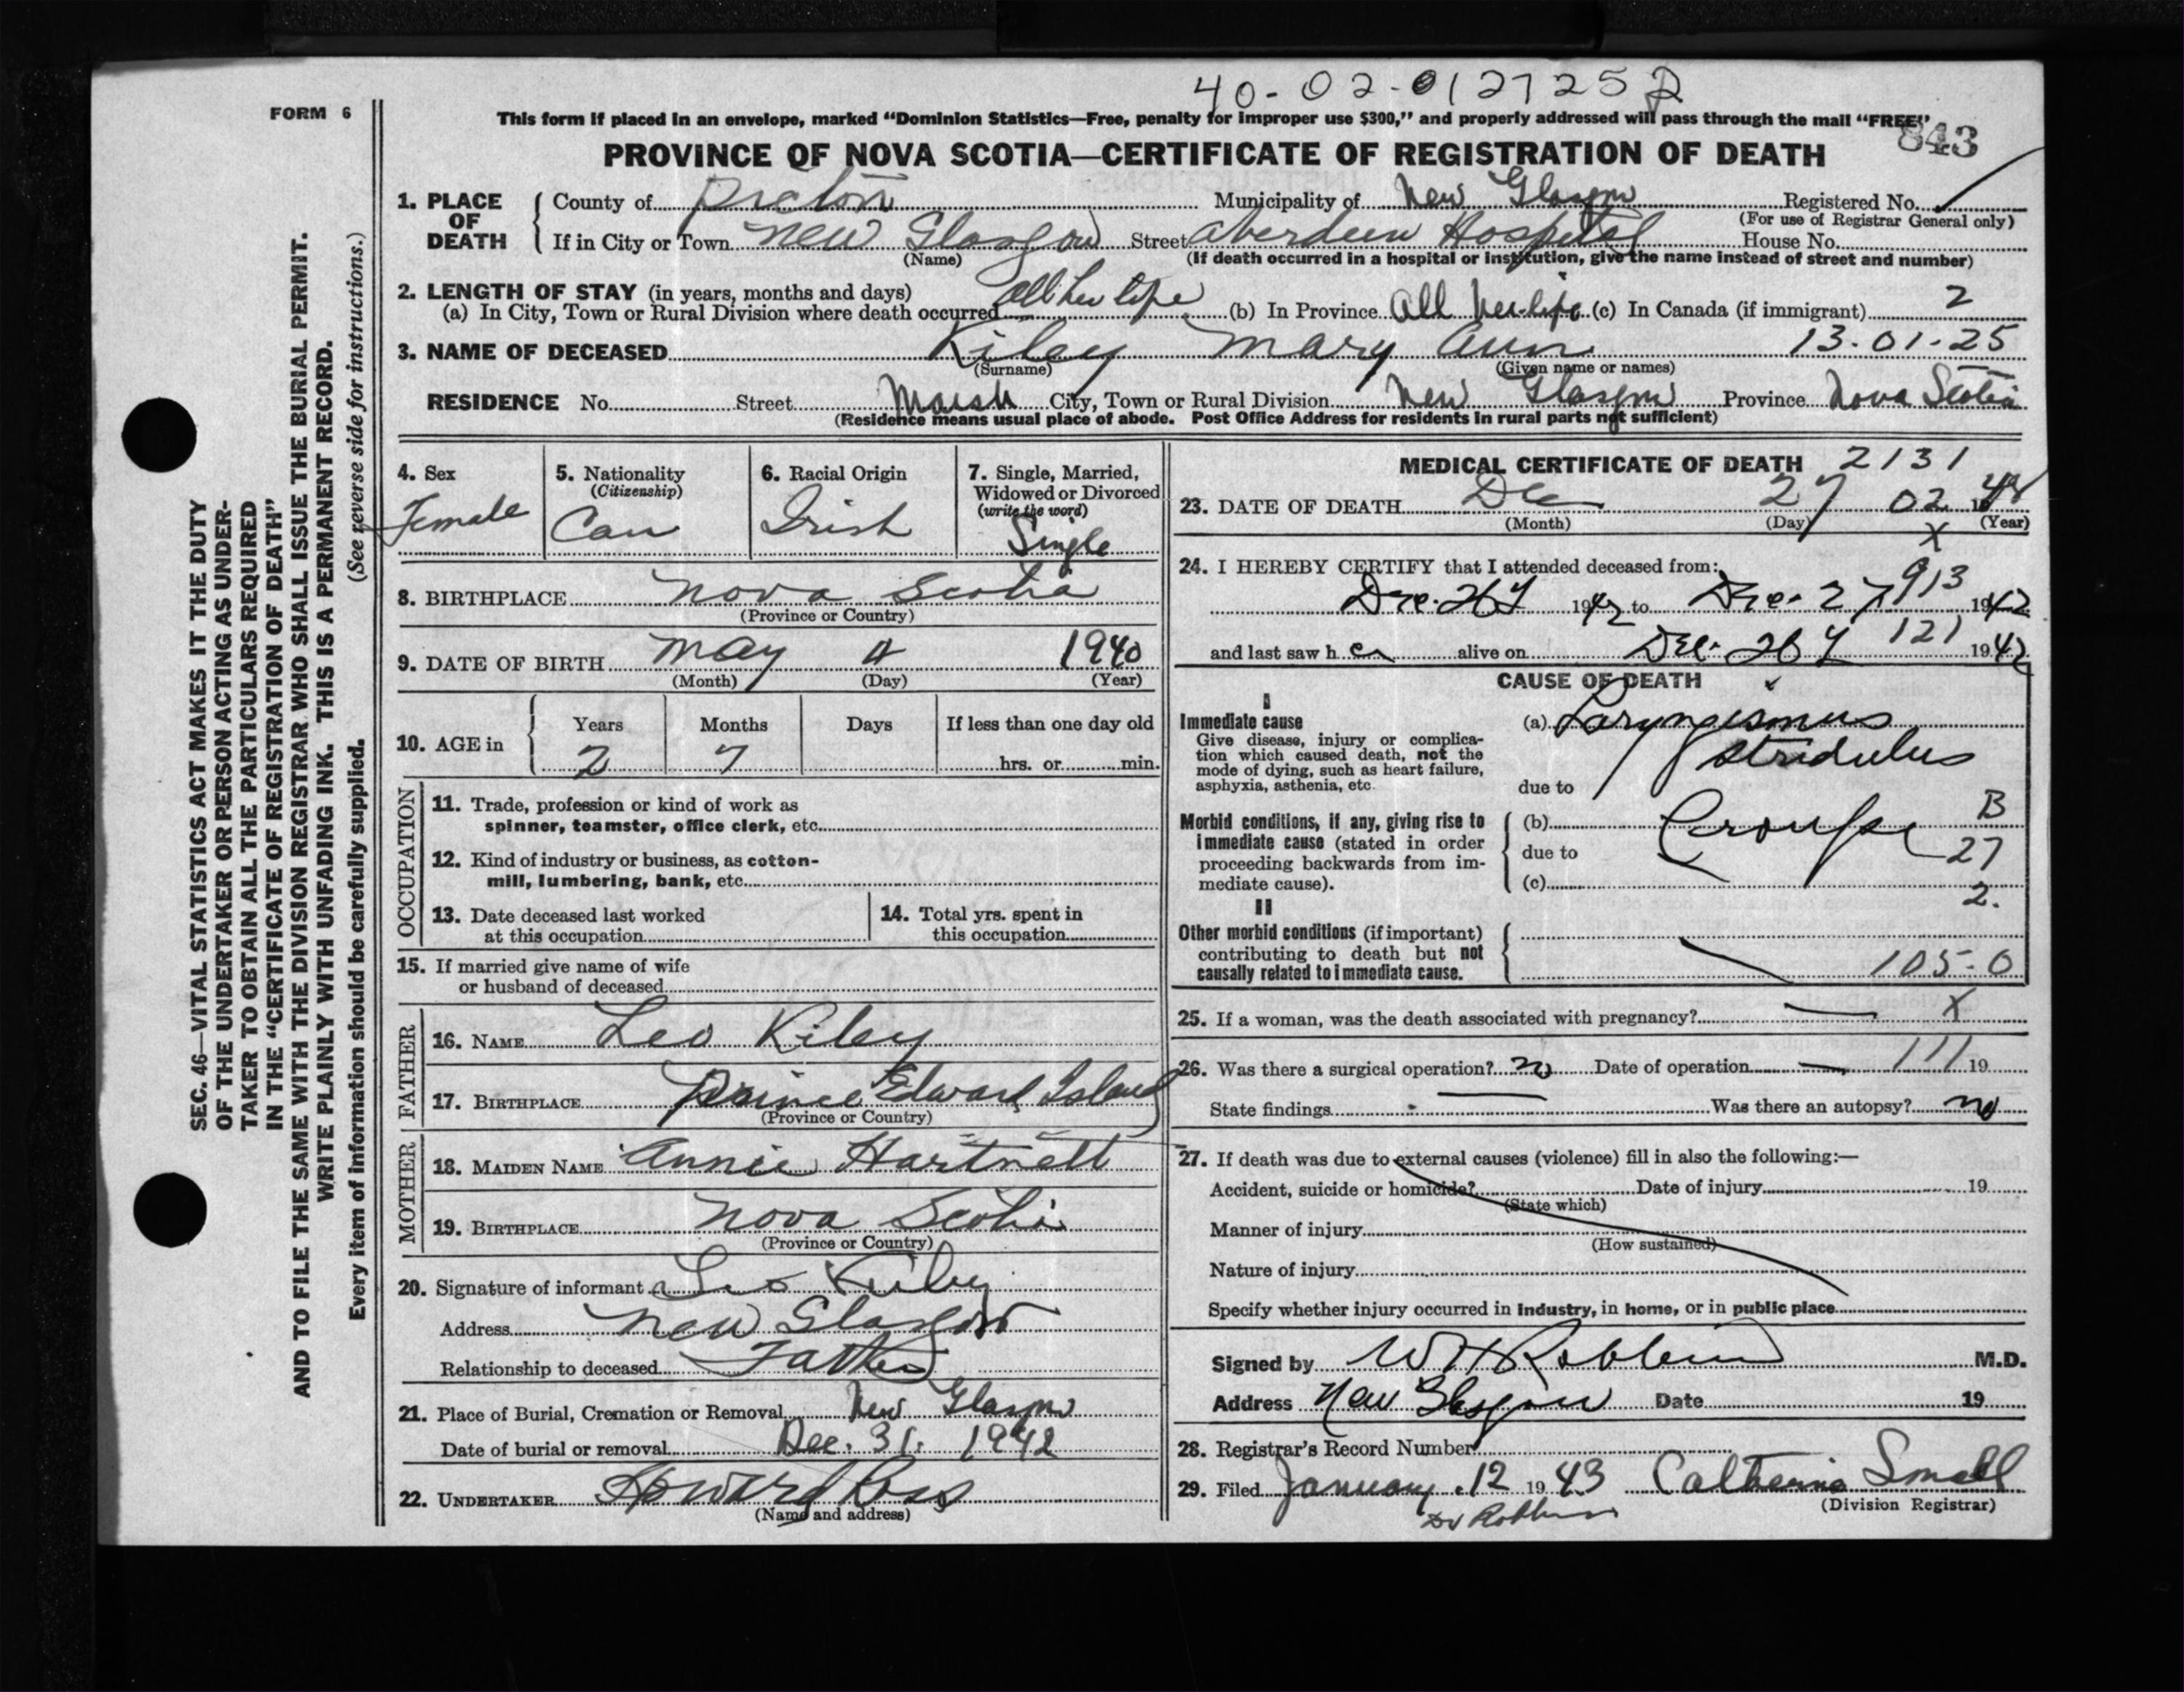 40-02-0127252
FORM 6
This form if placed in an envelope, marked “Dominion Statistics—Free, penalty for improper use $300,” and properly addressed will pass through the mail “FREE”
843
PROVINCE OF NOVA SCOTIA—CERTIFICATE OF REGISTRATION OF DEATH
1. PLACE OF DEATH
County of Pictou Municipality of New Glasgow Registered No.
(For use of Registrar General only)
If in City or Town New Glasgow Street Aberdeen Hospital House No.
(Name) (If death occurred in a hospital or institution, give the name instead of street and number)
2. LENGTH OF STAY (in years, months and days)
(a) In City, Town or Rural Division where death occurred all her life (b) In Province All her life (c) In Canada (if immigrant) 2
3. NAME OF DECEASED Kiley Mary Ann 13-01-25
(Surname) (Given name or names)
RESIDENCE No. Street Marsh City, Town or Rural Division New Glasgow Province Nova Scotia
(Residence means usual place of abode. Post Office Address for residents in rural parts not sufficient)
4. Sex
Female
5. Nationality
(Citizenship)
Can
6. Racial Origin
Irish
7. Single, Married,
Widowed or Divorced
(write the word)
Single
8. BIRTHPLACE Nova Scotia
(Province or Country)
9. DATE OF BIRTH May 4 1940
(Month) (Day) (Year)
10. AGE in
Years Months Days If less than one day old
2 7 hrs. or min.
OCCUPATION
11. Trade, profession or kind of work as
spinner, teamster, office clerk, etc.
12. Kind of industry or business, as cotton-
mill, lumbering, bank, etc.
13. Date deceased last worked
at this occupation
14. Total yrs. spent in
this occupation
15. If married give name of wife
or husband of deceased
FATHER
16. NAME Leo Kiley
17. BIRTHPLACE Prince Edward Island
(Province or Country)
MOTHER
18. MAIDEN NAME Annie Hartnett
19. BIRTHPLACE Nova Scotia
(Province or Country)
20. Signature of informant Leo Kiley
Address New Glasgow
Relationship to deceased Father
21. Place of Burial, Cremation or Removal New Glasgow
Date of burial or removal Dec. 31. 1942
22. UNDERTAKER Howard Ross
(Name and address)
MEDICAL CERTIFICATE OF DEATH 2131
23. DATE OF DEATH Dec 27 02
(Month) (Day) (Year)
X
24. I HEREBY CERTIFY that I attended deceased from:
913
Dec. 26 1942 to Dec. 27 1942
and last saw her alive on Dec. 26 121 1942
CAUSE OF DEATH
I
Immediate cause
Give disease, injury or complica-
tion which caused death, not the
mode of dying, such as heart failure,
asphyxia, asthenia, etc.
(a) Laryngismus
stridulus
due to
Morbid conditions, if any, giving rise to
immediate cause (stated in order
proceeding backwards from im-
mediate cause).
(b) Croup B
due to 27
(c) 2.
II
Other morbid conditions (if important)
contributing to death but not
causally related to immediate cause.
105-0
25. If a woman, was the death associated with pregnancy? — X
26. Was there a surgical operation? no Date of operation — 111 19
State findings — Was there an autopsy? no
27. If death was due to external causes (violence) fill in also the following:—
Accident, suicide or homicide? Date of injury 19
(State which)
Manner of injury
(How sustained)
Nature of injury
Specify whether injury occurred in industry, in home, or in public place
Signed by W H Robbins M.D.
Address New Glasgow Date 19
28. Registrar's Record Number
29. Filed January 12 1943 Catherine Small
(Division Registrar)
Dr Robbins
SEC. 46—VITAL STATISTICS ACT MAKES IT THE DUTY
OF THE UNDERTAKER OR PERSON ACTING AS UNDER-
TAKER TO OBTAIN ALL THE PARTICULARS REQUIRED
IN THE “CERTIFICATE OF REGISTRATION OF DEATH”
AND TO FILE THE SAME WITH THE DIVISION REGISTRAR WHO SHALL ISSUE THE BURIAL PERMIT.
WRITE PLAINLY WITH UNFADING INK. THIS IS A PERMANENT RECORD.
Every item of information should be carefully supplied. (See reverse side for instructions.)